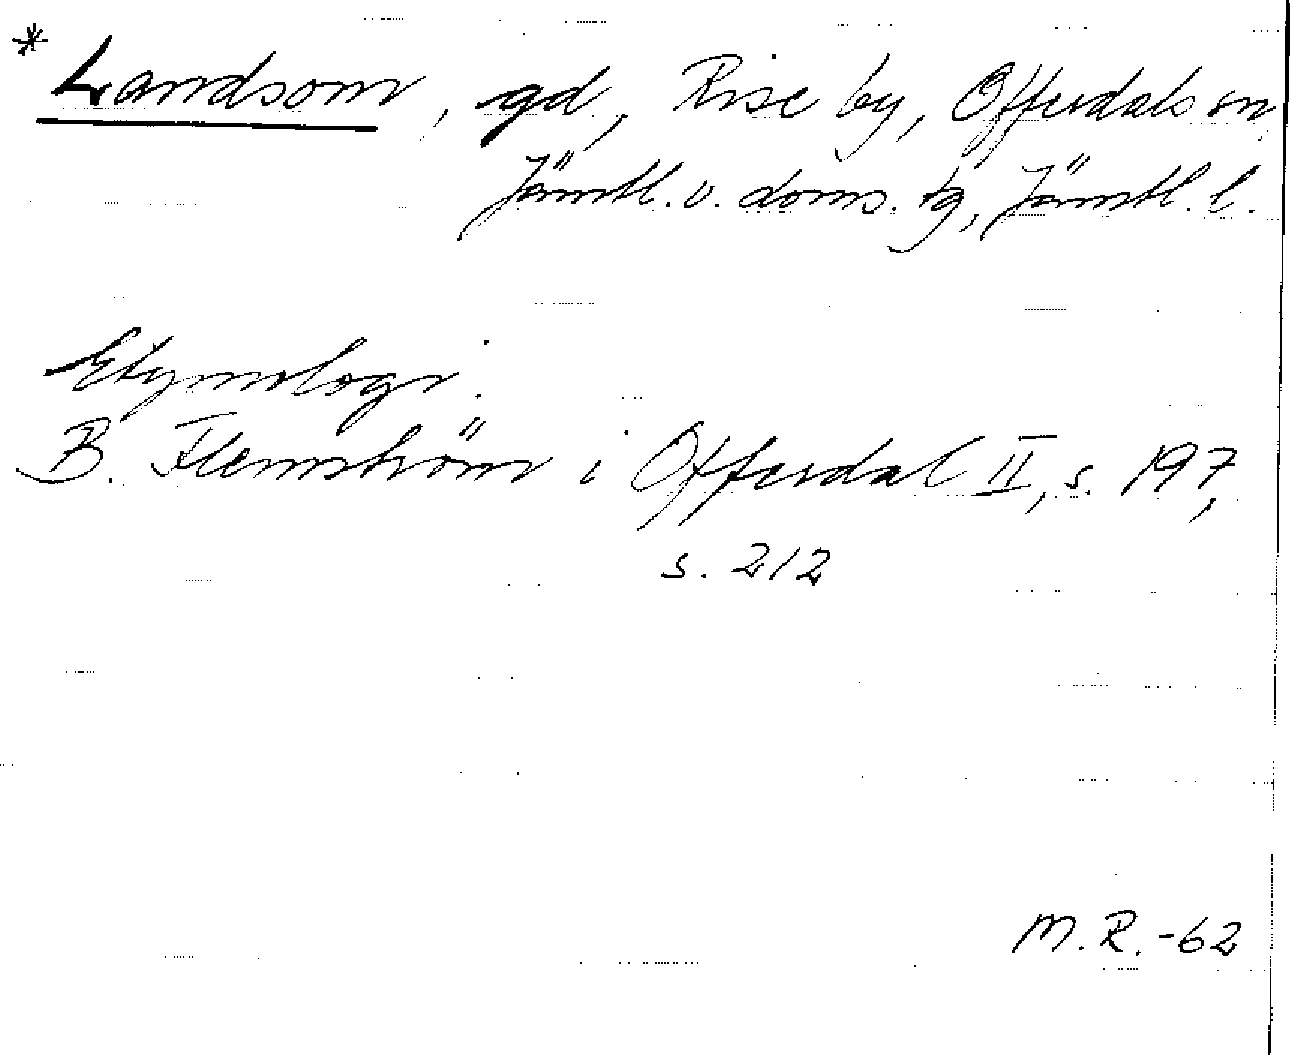 * Landsom, gd, Rise by, Offerdals sn,
Jämtl. v. doms. tg, Jämtl. l.
Etymologi.
B. Flemström i Offerdal II, s. 197,
s. 212
M.R.-62